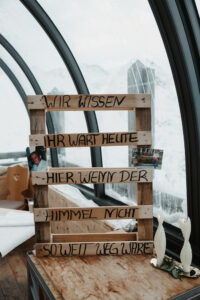 WIR WISSEN
IHR WÄRT HEUTE
HIER, WENN DER
HIMMEL NICHT
SO WEIT WEG WÄRE